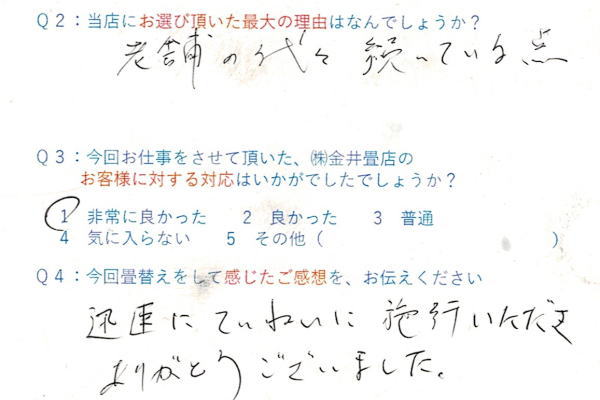 Q2：当店にお選び頂いた最大の理由はなんでしょうか？
老舗の代々続いている点
Q3：今回お仕事をさせて頂いた、㈱金井畳店の
お客様に対する対応はいかがでしたでしょうか？
1 非常に良かった 2 良かった 3 普通
4 気に入らない 5 その他（ ）
Q4：今回畳替えをして感じたご感想を、お伝えください
迅速にていねいに施行いただき
ありがとうございました。